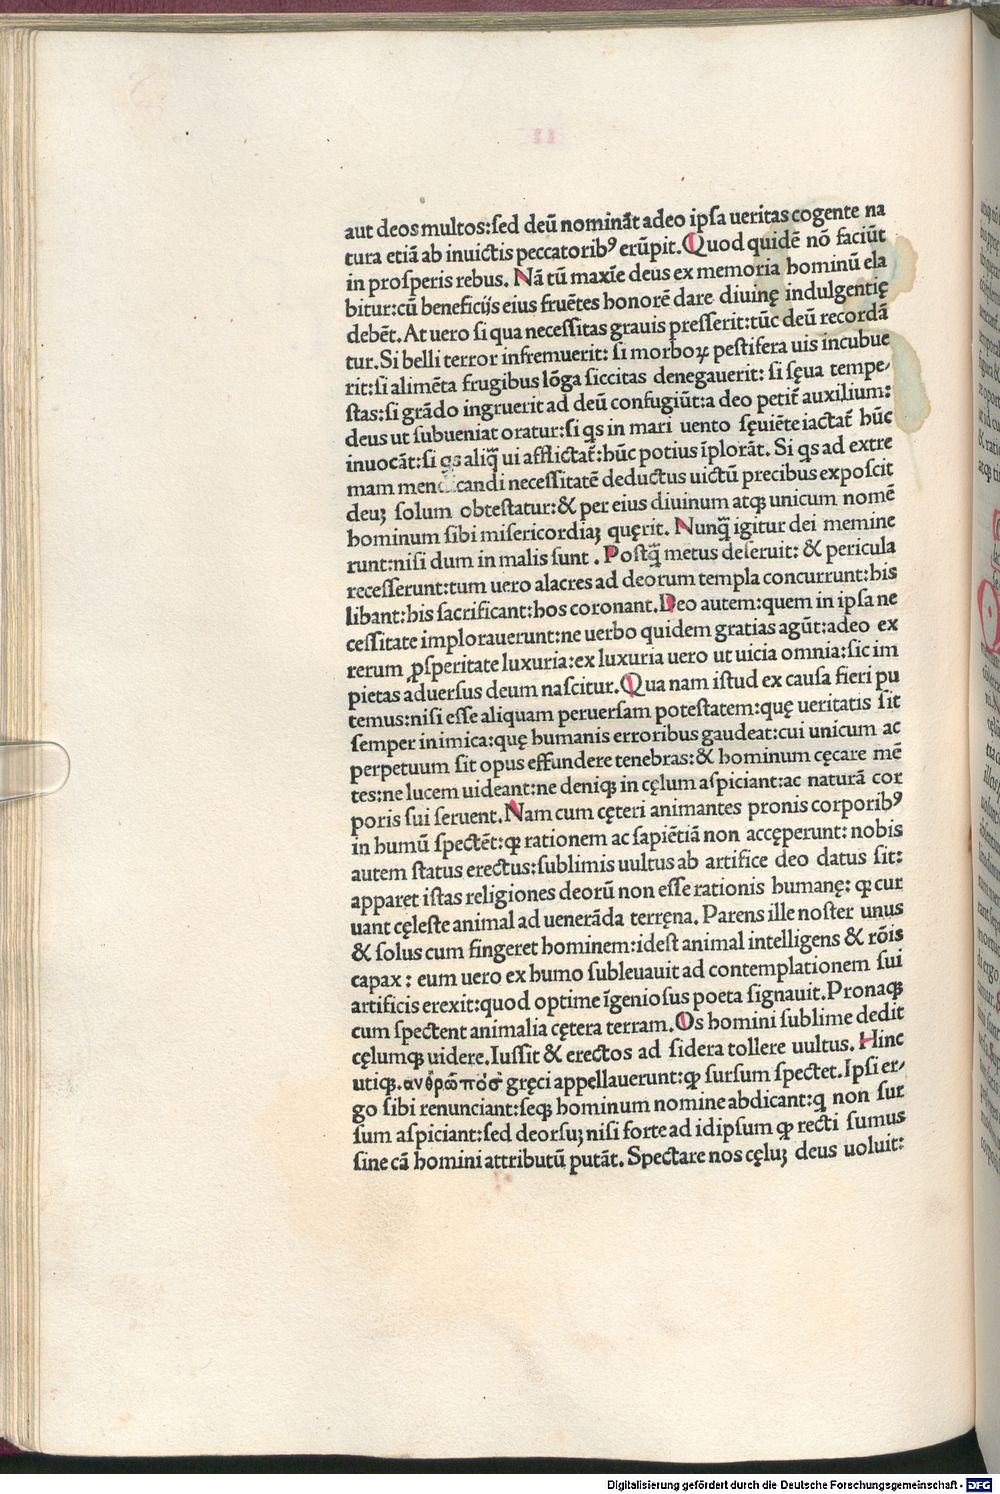 aut deos multos:ſed deū nominãt adeo ipſa ueritas cogente na
tura etiã ab inuictis peccatoribꝰ erũpit. Quod quidē nō faciũt
in proſperis rebus. Nã tũ maxīe deus ex memoria hominũ ela
bitur:cũ beneficijs eius fruētes honorē dare diuinę indulgentię
debēt. At uero ſi qua neceſſitas grauis preſſerit:tũc deũ recordã
tur. Si belli terror infremuerit: ſi morboꝝ peſtifera uis incubue
rit:ſi alimēta frugibus lōga ſiccitas denegauerit: ſi ſęua tempe⸗
ſtas:ſi grãdo ingruerit ad deũ confugiũt:a deo petit᷑ auxilium:
deus ut ſubueniat oratur:ſi qs in mari uento ſęuiēte iactat᷑ hũc
inuocãt:ſi qs aliq̄ ui afflictat᷑:hũc potius īplorãt. Si qs ad extre
mam mendicandi neceſſitatē deductus uictũ precibus expoſcit
deuꝫ ſolum obteſtatur:& per eius diuinum atqꝫ unicum nomē
hominum ſibi miſericordiaꝫ quęrit. Nunq̄ igitur dei memine
runt:niſi dum in malis ſunt . Poſtq̄ metus deſeruit: & pericula
receſſerunt:tum uero alacres ad deorum templa concurrunt:his
libant:his ſacrificant:hos coronant. Deo autem:quem in ipſa ne
ceſſitate implorauerunt:ne uerbo quidem gratias agũt:adeo ex
rerum ꝓſperitate luxuria:ex luxuria uero ut uicia omnia:ſic im
pietas aduerſus deum naſcitur. Qua nam iſtud ex cauſa fieri pu
temus:niſi eſſe aliquam peruerſam poteſtatem:quę ueritatis ſit
ſemper inimica:quę humanis erroribus gaudeat:cui unicum ac
perpetuum ſit opus effundere tenebras:& hominum cęcare mē
tes:ne lucem uideant:ne deniqꝫ in cęlum aſpiciant:ac naturã cor
poris ſui ſeruent. Nam cum cęteri animantes pronis corporibꝰ
in humũ ſpectēt:ꝙ rationem ac ſapiētiã non accęperunt: nobis
autem ſtatus erectus:ſublimis uultus ab artifice deo datus ſit:
apparet iſtas religiones deorũ non eſſe rationis humanę: ꝙ cur
uant cęleſte animal ad uenerãda terręna. Parens ille noſter unus
& ſolus cum fingeret hominem:ideſt animal intelligens & rōis
capax : eum uero ex humo ſubleuauit ad contemplationem ſui
artificis erexit:quod optime īgenioſus poeta ſignauit. Pronaqꝫ
cum ſpectent animalia cętera terram. Os homini ſublime dedit
cęlumqꝫ uidere. Iuſſit & erectos ad ſidera tollere uultus. Hinc
utiqꝫ. ανθρωπόσ gręci appellauerunt:ꝙ ſurſum ſpectet. Ipſi er⸗
go ſibi renunciant:ſeqꝫ hominum nomine abdicant:q non ſur
ſum aſpiciant:ſed deorſuꝫ niſi forte ad idipſum ꝙ recti ſumus
ſine cã homini attributũ putãt. Spectare nos cęluꝫ deus uoluit:
Digitalisierung gefördert durch die Deutsche Forschungsgemeinschaft - DFG